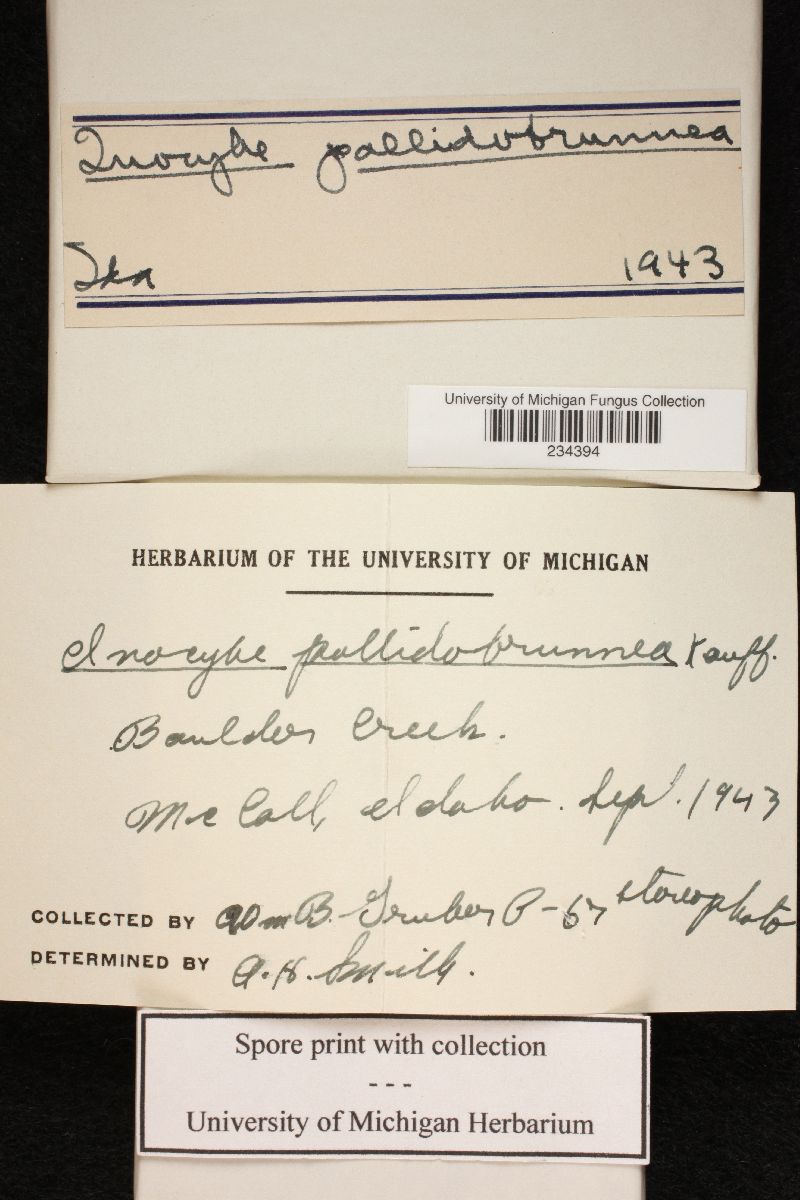 Inocybe pallidobrunnea
Ida
1943
University of Michigan Fungus Collection
234394
HERBARIUM OF THE UNIVERSITY OF MICHIGAN
Inocybe pallidobrunnea Kauff.
Boulder Creek.
McCall, Idaho. Sept. 1943
COLLECTED BY Wm B. Gruber P-67 stereophoto
DETERMINED BY A.H. Smith.
Spore print with collection
---
University of Michigan Herbarium